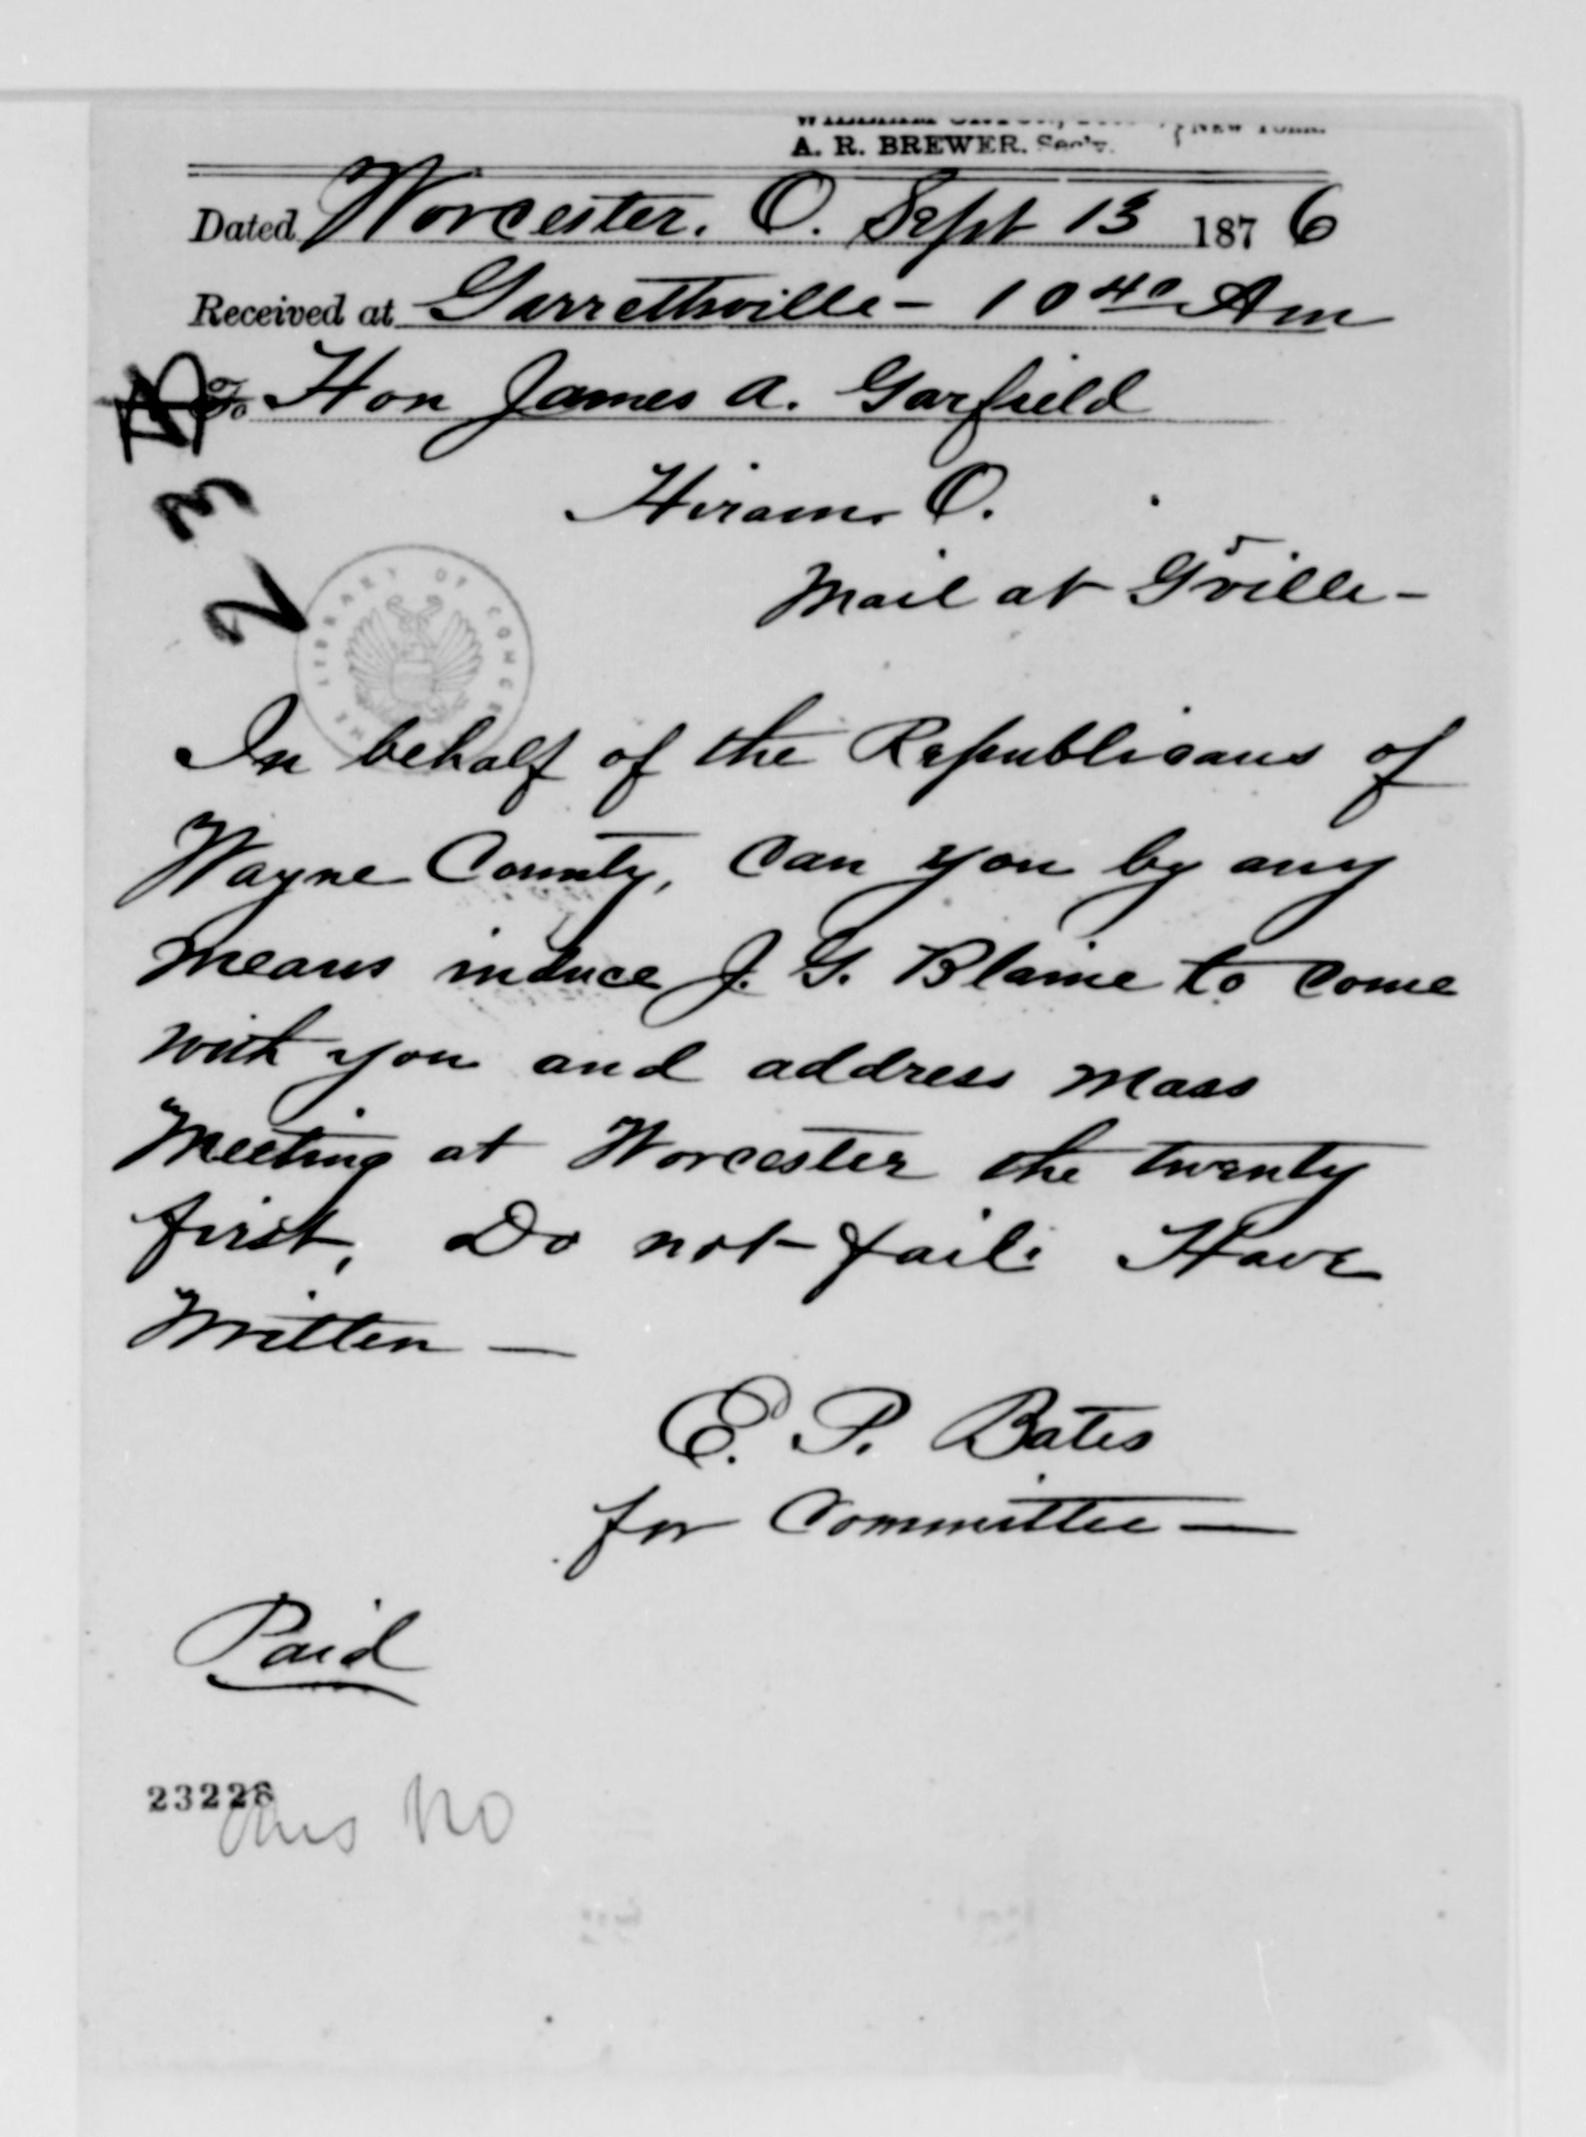 A. R. BREWER, Sec'y.
NEW YORK.
Dated Worcester, O. Sept 13 1876
Received at Garrettsville - 10 40 Am
To Hon James A. Garfield
Hiram O.
Mail at Gville -
In behalf of the Republicans of
Wayne County, Can you by any
means induce J. G. Blaine to come
with you and address mass
Meeting at Worcester the twenty
first, Do not fail. Have
Written —
E. P. Bates
for Committee —
Paid
23228
Ans No
2 3
THE LIBRARY OF CONGRESS